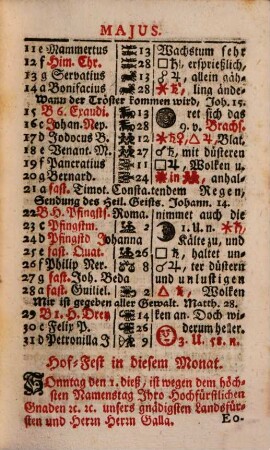 MAJUS.
11 e Mammertus 13 Wachstum sehr
12 f Him. Chr. 28 □♄, ersprießlich,
13 g Servatius 13 ☍♃, allein gäh-
14 a Bonifacius 28 ling ände-
Wann der Tröster kommen wird, Joh. 15.
15 B 6. Exaudi. 13 ret sich das
16 c Johan. Nep. 9. v. Brachs.
17 d Jodocus B. Blat,
18 e Venant. M. mit düsteren
19 f Pancratius 11 Wolken u.
20 g Bernard. 24 in anhal-
21 a fast. Timot. Consta. tendem Regen,
Sendung des Heil. Geists. Johann. 14.
22 B H. Pfingstf. Roma. nimmet auch die
23 c Pfingstm. 1. U. n.
24 d Pfingstd Johanna Kälte zu, und
25 e fast. Quat. 26 □♄, haltet un-
26 f Philip Ner. 8 ter düstern
27 g fast. Joh. Beda und unlustigen
28 a fast. Guiliel. 2 Wolken
Mir ist gegeben aller Gewalt. Matth. 28.
29 B 1. H. Drey 14 ken an. Doch wi-
30 c Felix P. derum heller.
31 d Petronilla J 9 3. U. 58. n.
Hof-Fest in diesem Monat.
Sonntag den 1. dieß, ist wegen dem höch-
sten Namenstag Ihro Hochfürstlichen
Gnaden ꝛc. ꝛc. unsers gnädigsten Landsfür-
sten und Herrn Herrn Galla.
Eo-